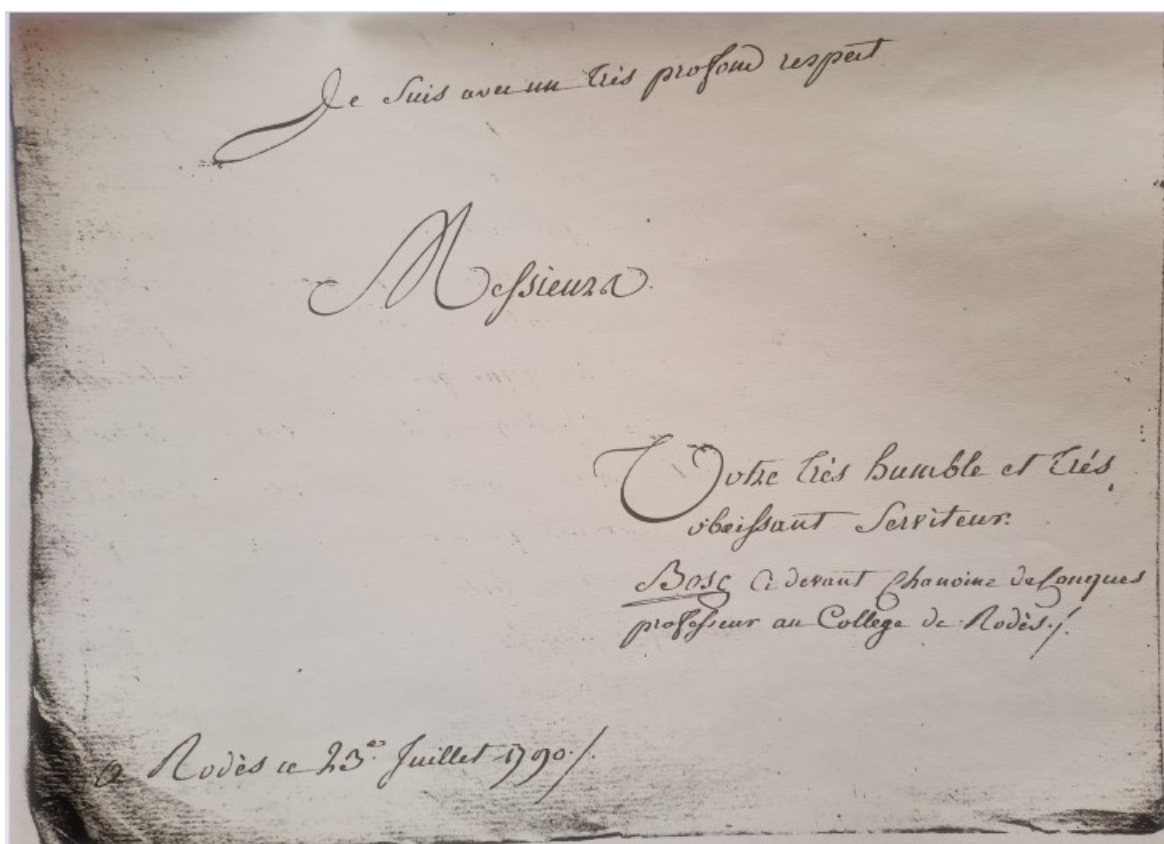 Je suis avec un très profond respect
Messieurs
Votre très humble et trés
obeissant Serviteur.
Bosc Ci devant Chanoine de Conques
professeur au Collège de Rodès./.
a Rodès ce 23.e Juillet 1790./.